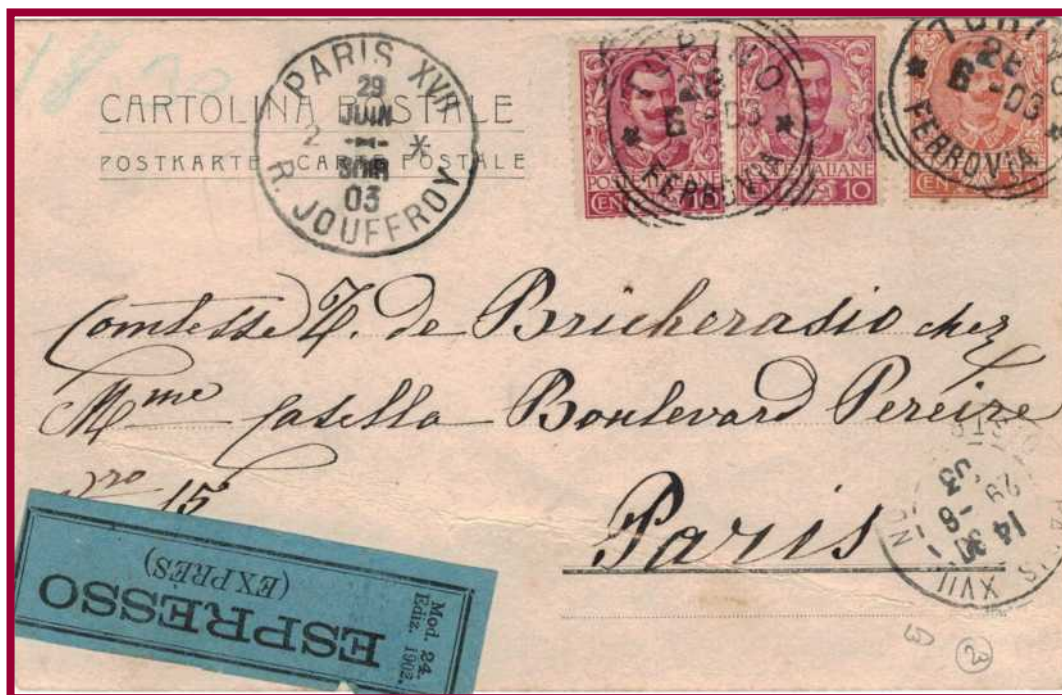 CARTOLINA POSTALE
POSTKARTE CARTE POSTALE
PARIS XVII
29
JUIN
03
R. JOUFFROY
TORINO
28
6 -03
FERROVIA
POSTE ITALIANE
CEN
POSTE ITALIANE
CEN 10
28
6 -03
FERROVIA
CEN
Comtesse T. de Bricherasio chez
Mme Casella Boulevard Pereire
Nro 15
Paris
XVII
14 30
29 -6
03
ESPRESSO
(EXPRÈS)
Mod. 24.
Ediz. 1902.
23